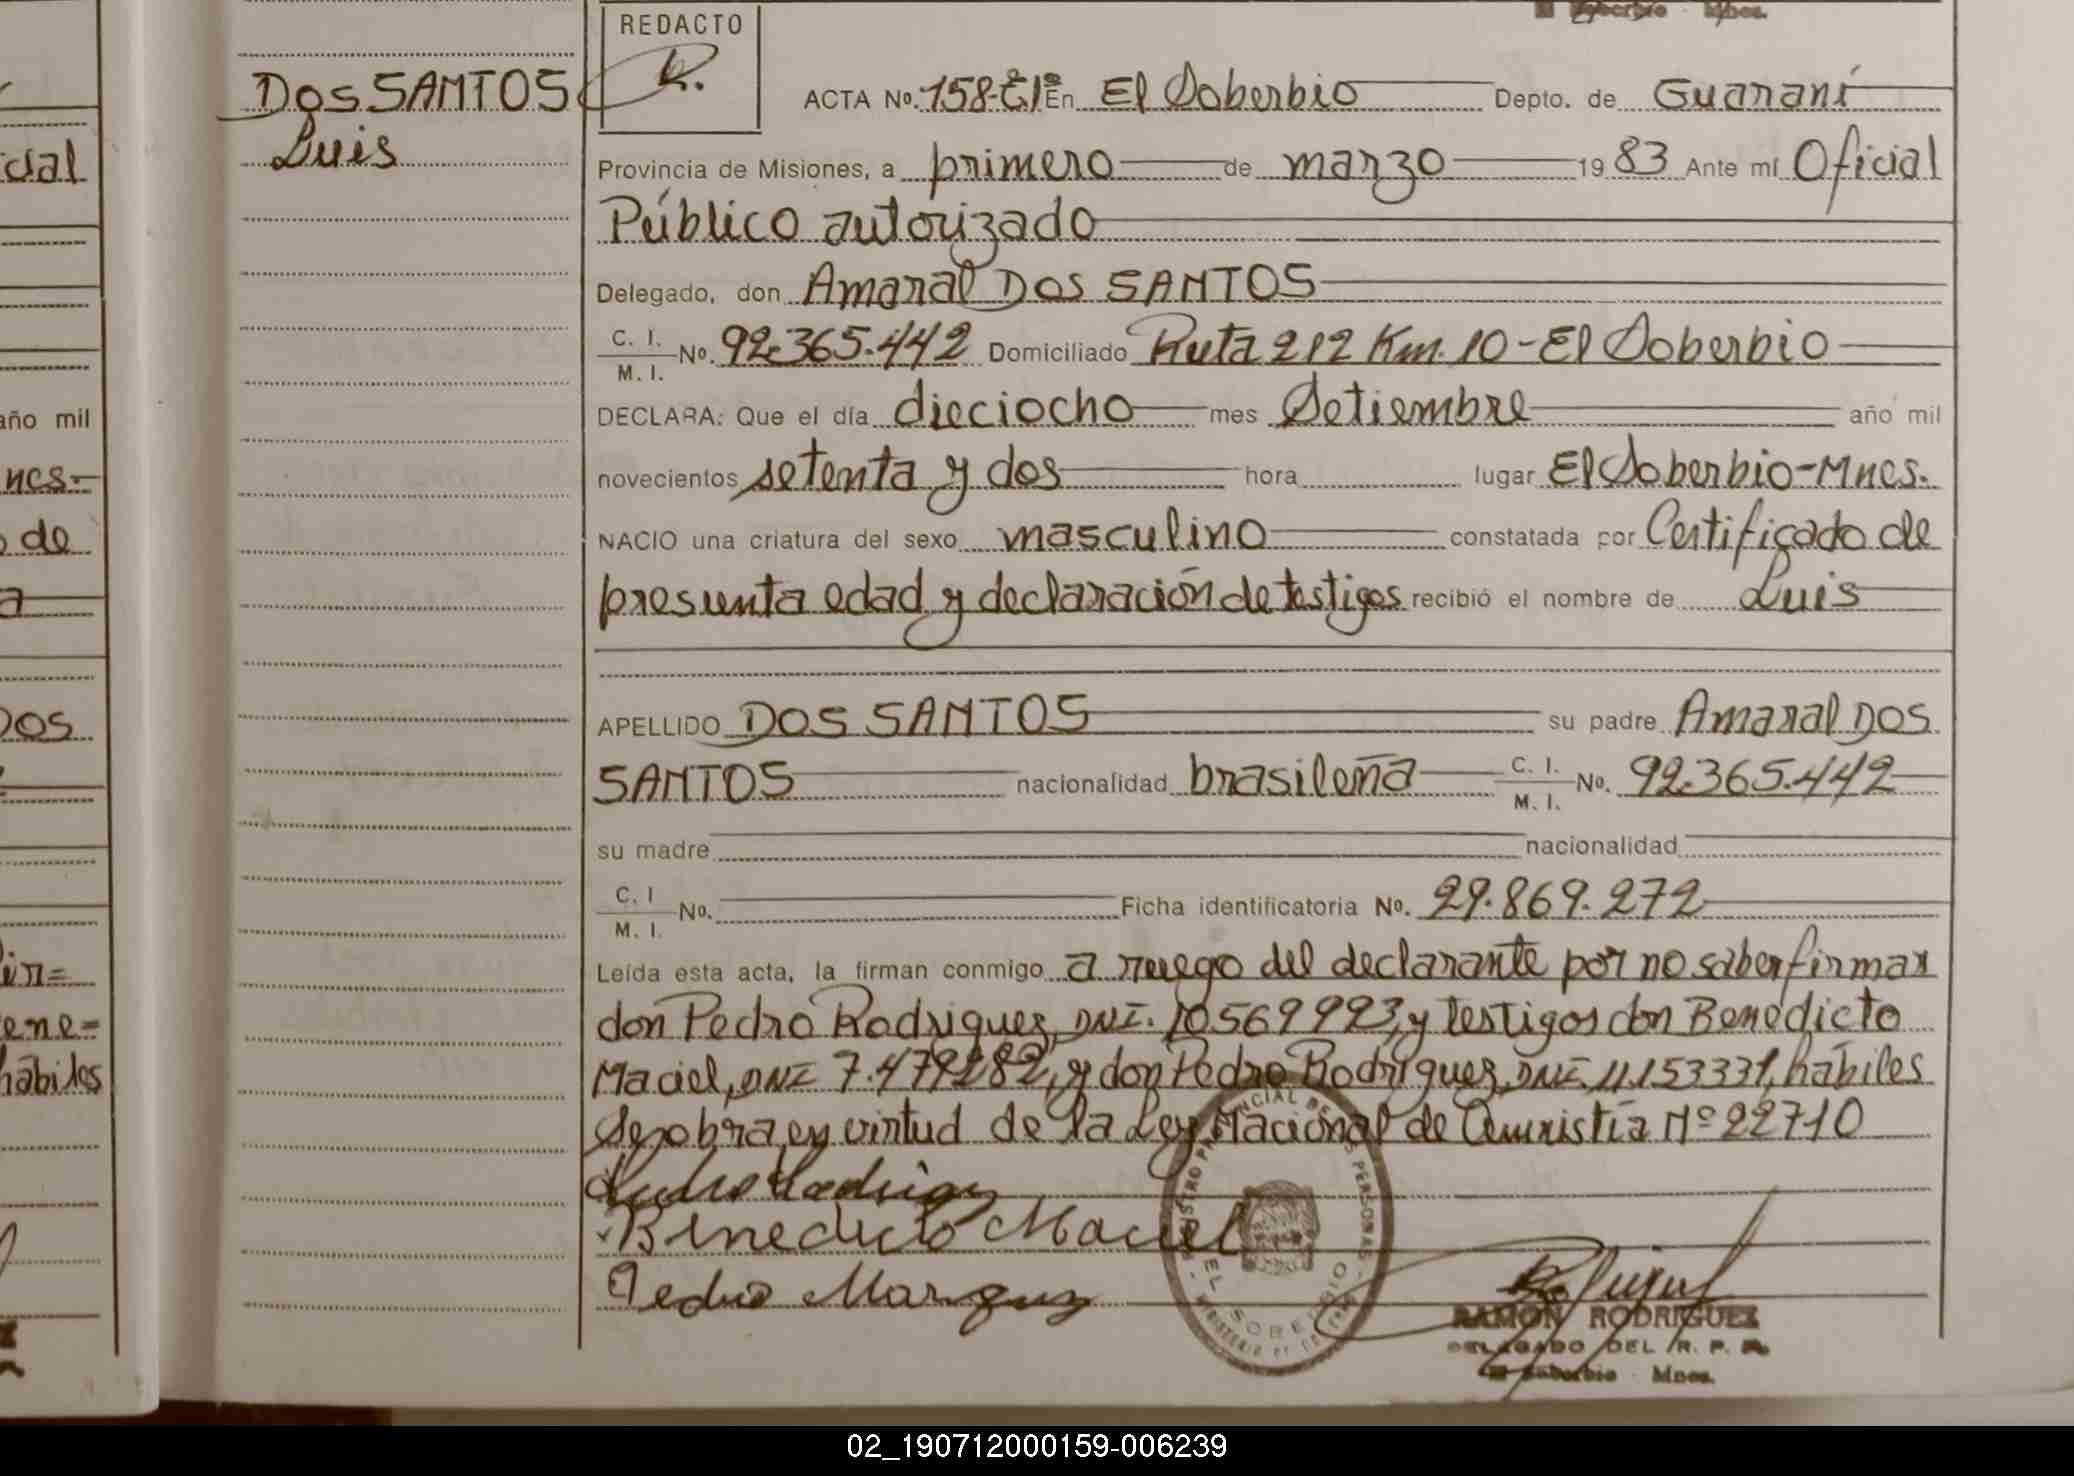 REDACTO
R.
Dos SANTOS
Luis
ACTA No. 158-E1º En El Soberbio Depto. de Guaraní
Provincia de Misiones, a primero de marzo 1983 Ante mí Oficial
Público autorizado
Delegado, don Amaral Dos SANTOS
C. I. / M. I. No. 92.365.442 Domiciliado Ruta 212 Km. 10 - El Soberbio
DECLARA: Que el día dieciocho mes Setiembre año mil
novecientos setenta y dos hora lugar El Soberbio - Mnes.
NACIO una criatura del sexo masculino constatada por Certificado de
presunta edad y declaración de testigos recibió el nombre de Luis
APELLIDO DOS SANTOS su padre Amaral DOS
SANTOS nacionalidad brasileña C. I. / M. I. No. 92.365.442
su madre nacionalidad
C. I / M. I. No. Ficha identificatoria No. 29.869.272
Leída esta acta, la firman conmigo a ruego del declarante por no saber firmar
don Pedro Rodriguez, DNI. 10569993, y testigos don Benedicto
Maciel, DNI 7.479282, y don Pedro Rodriguez, DNI. 11.153331, hábiles
Se obra en virtud de la Ley Nacional de Amnistía Nº 22710
Pedro Rodriguez
Benedicto Maciel
Pedro Marquez
EL SOBERBIO
RAMON RODRIGUEZ
DELEGADO DEL R. P. P.
El Soberbio Mnes.
cial
año mil
nes-
de
a
DOS
ene=
hábiles
02_190712000159-006239